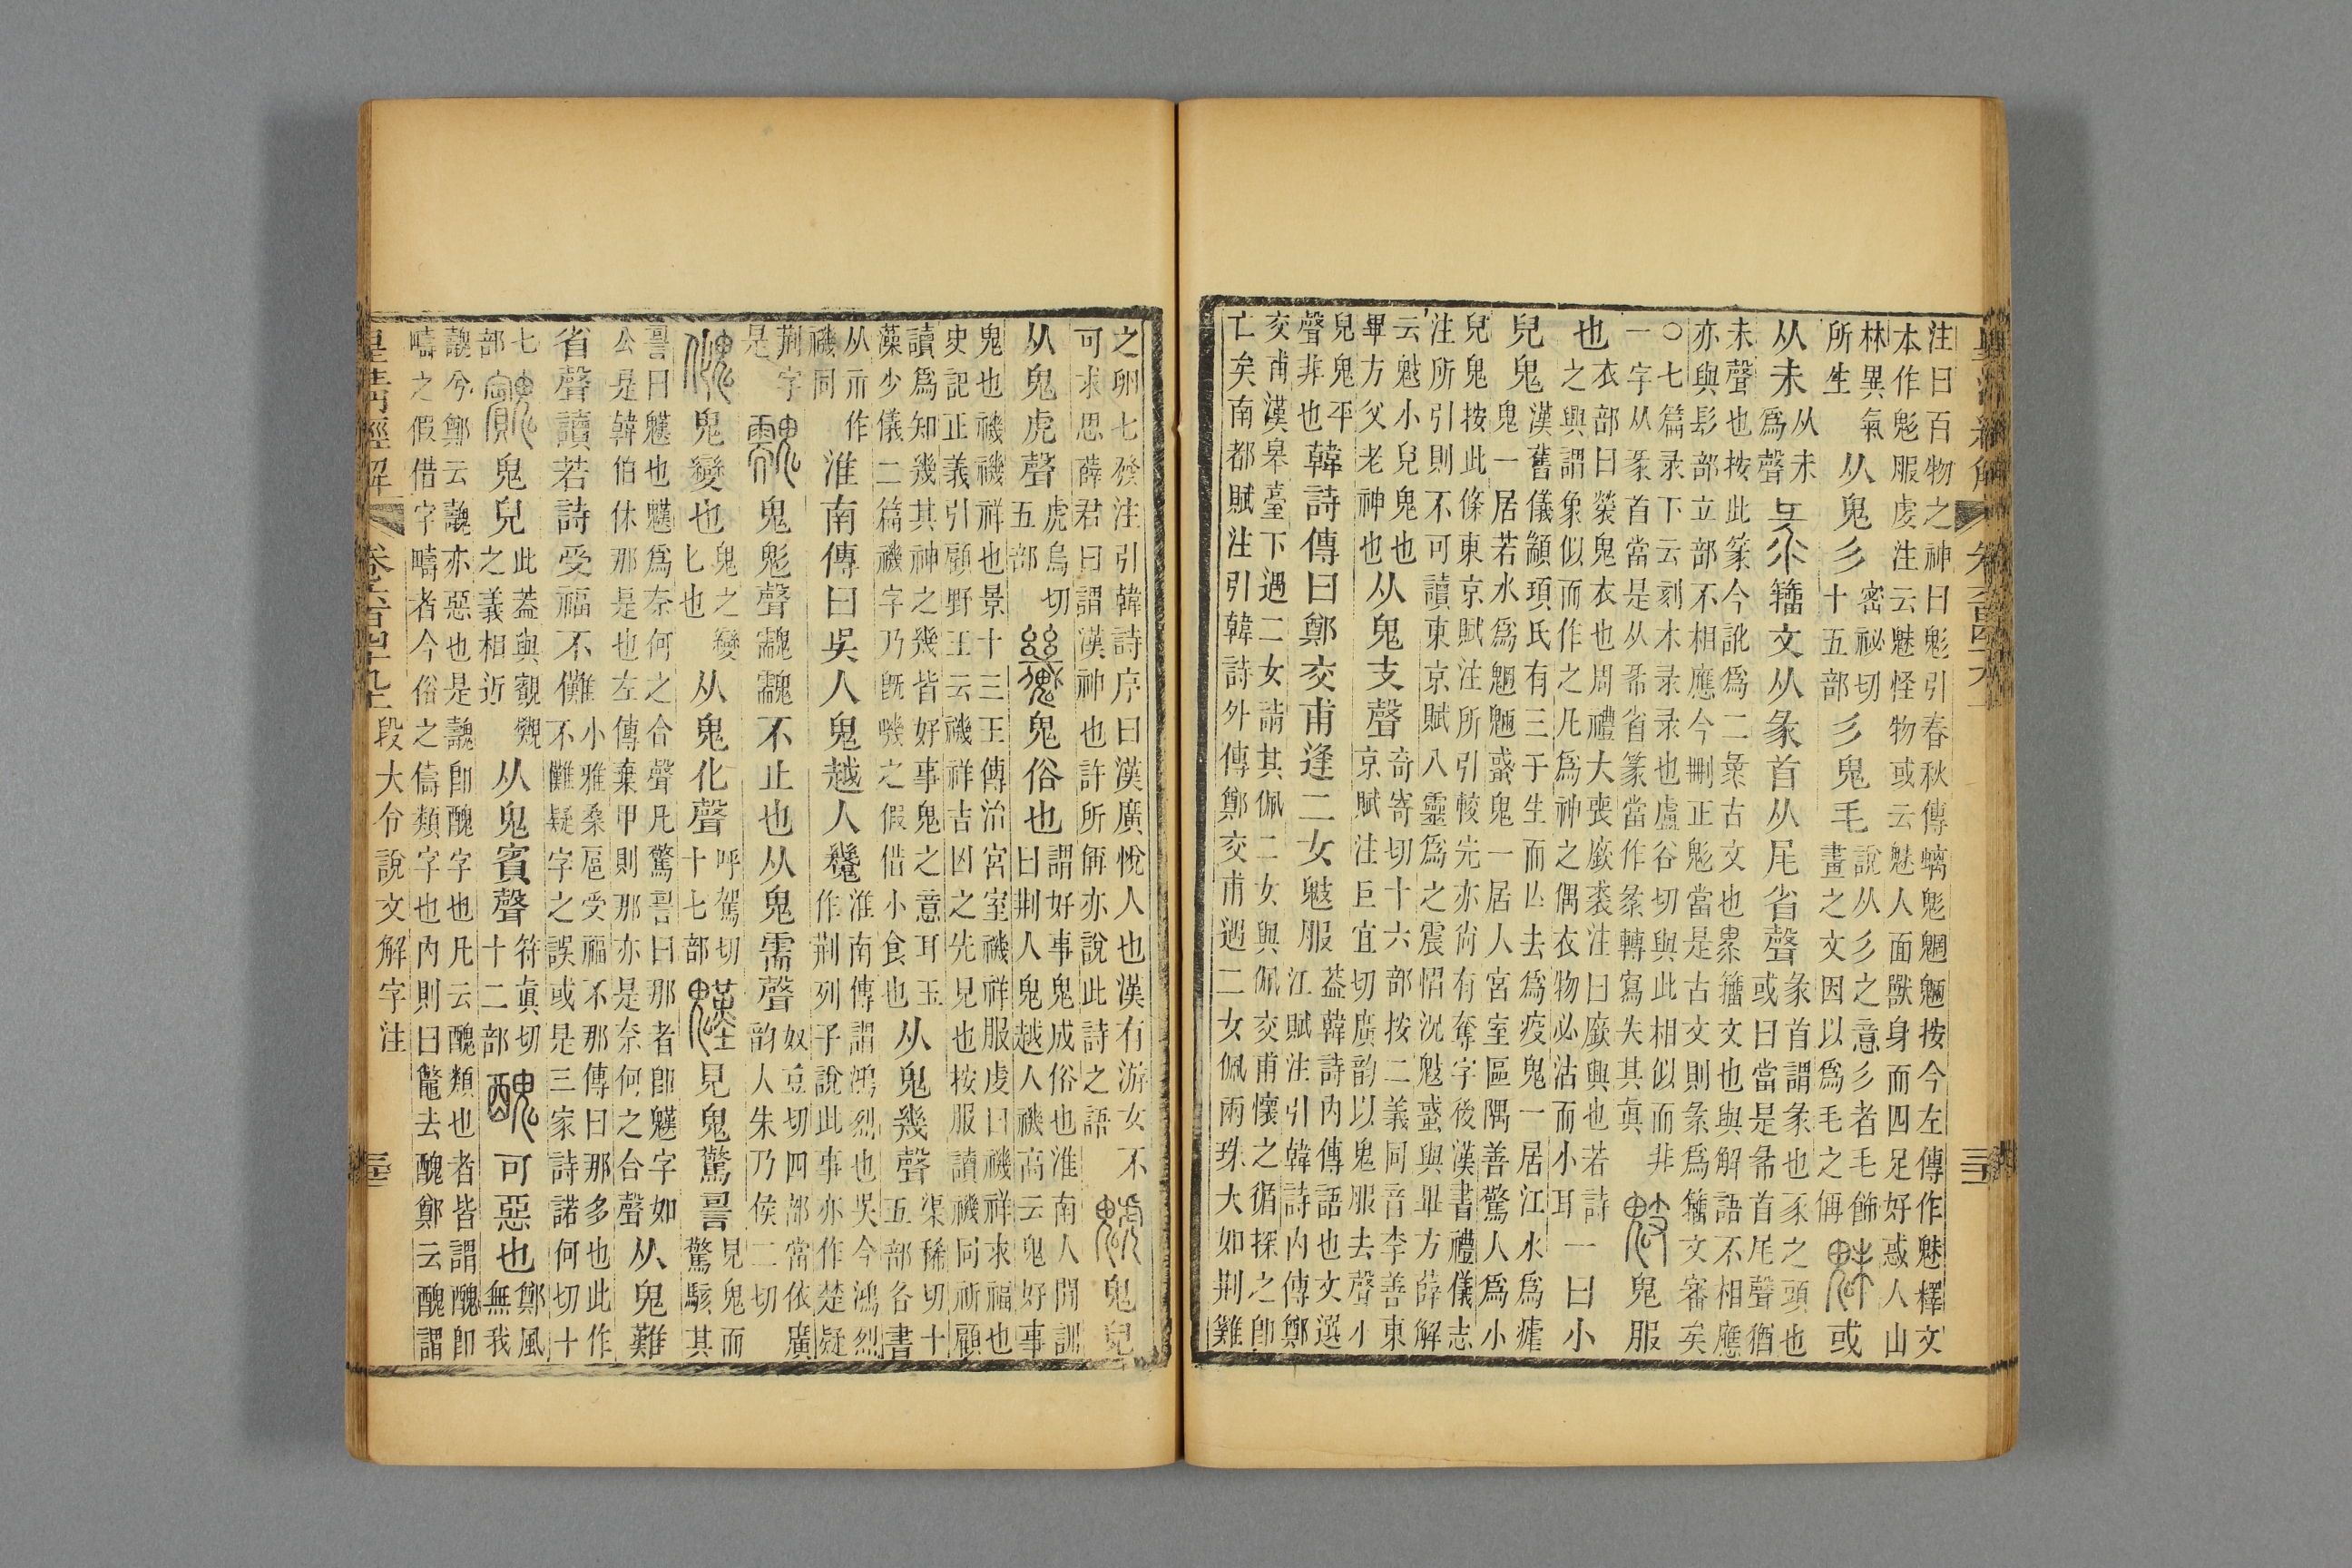 皇清經解 卷六百四十九上
注曰百物之神曰鬽引春秋傳螭鬽魍魎按今左傳作魅釋文
本作鬽服虔注云魅怪物或云魅人面獸身而四足好惑人山
林異氣所生 从鬼彡 密祕切十五部 彡鬼毛 說从彡之意彡者毛飾畫之文因以為毛之偁 魅 或
从未 从未為聲 籒文从彖首从尾省聲 彖首謂彖也豕之頭也或曰當是㣇首尾聲猶
未聲也按此篆今訛為二㣇古文也籒文也與解語不相應
亦與髟部立部不相應今刪正鬽當是古文則彖為籒文審矣
〇七篇录下云刻木录录也盧谷切與此相似而非一字从彖首當是从㣇省篆當作彖轉寫失其眞 鬾 鬼服
也 衣部曰褮鬼衣也周禮大喪廞裘注曰廞興也若詩之興謂象似而作之凡為神之偶衣物必沽而小耳 一曰小
兒鬼 漢舊儀顓頊氏有三子生而亾去為疫鬼一居江水為瘧鬼一居若水為魍魎蜮鬼一居人宮室區隅善驚人為小
兒鬼按此條東京賦注所引較完亦尚有奪字後漢書禮儀志
注所引則不可讀東京賦八靈為之震慴況鬾蜮與畢方薛解
云鬾小兒鬼也畢方父老神也 从鬼支聲 奇寄切十六部按二義同音李善東京賦注巨宜切廣韵以鬼服去聲小
兒鬼平聲非也 韓詩傳曰鄭交甫逢二女鬾服 蓋韓詩內傳語也文選江賦注引韓詩內傳鄭
交甫漢皋臺下遇二女請其佩二女與佩交甫懷之循探之卽
亡矣南都賦注引韓詩外傳鄭交甫遇二女佩兩珠大如荆雞
之卵七發注引韓詩序曰漢廣悅人也漢有游女不可求思薛君曰謂漢神也許所偁亦說此詩之語 鬼皃
从鬼虎聲 虎烏切五部 鬼俗也 謂好事鬼成俗也淮南人閒訓曰荆人鬼越人禨高云鬼好事
鬼也禨禨祥也景十三王傳治宮室禨祥服虔曰禨祥求福也
史記正義引顧野王云禨祥吉凶之先見也按服讀禨同祈顧
讀為知幾其神之幾皆好事鬼之意耳玉藻少儀二篇禨字乃旣嘰之假借小食也 从鬼幾聲 渠稀切十五部各書
从示作禨同 淮南傳曰吳人鬼越人䰇 淮南傳謂鴻烈也吳今鴻烈作荆列子說此事亦作楚疑
荆字是 䰰 鬼鬽聲䰰䰰不止也从鬼需聲 奴豆切四部當依廣韵人朱乃侯二切
魤 鬼變也 鬼之變匕也 从鬼化聲 呼駕切十七部 見鬼驚䛐 見鬼而驚駭其
䛐曰㒟也㒟為奈何之合聲凡驚䛐曰那者卽㒟字如公是韓伯休那是也左傳棄甲則那亦是奈何之合聲 从鬼難
省聲讀若詩受福不儺 小雅桑扈受福不那傳曰那多也此作不儺疑字之誤或是三家詩諾何切十
七部 鬼皃 此蓋與覿之義相近 从鬼賓聲 符眞切十二部 醜 可惡也 鄭風無我
魗兮鄭云魗亦惡也是魗卽醜字也凡云醜類也者皆謂醜卽
疇之假借字疇者今俗之儔類字也內則曰鼈去醜鄭云醜謂
皇清經解 卷六百四十九上 段大令說文解字注